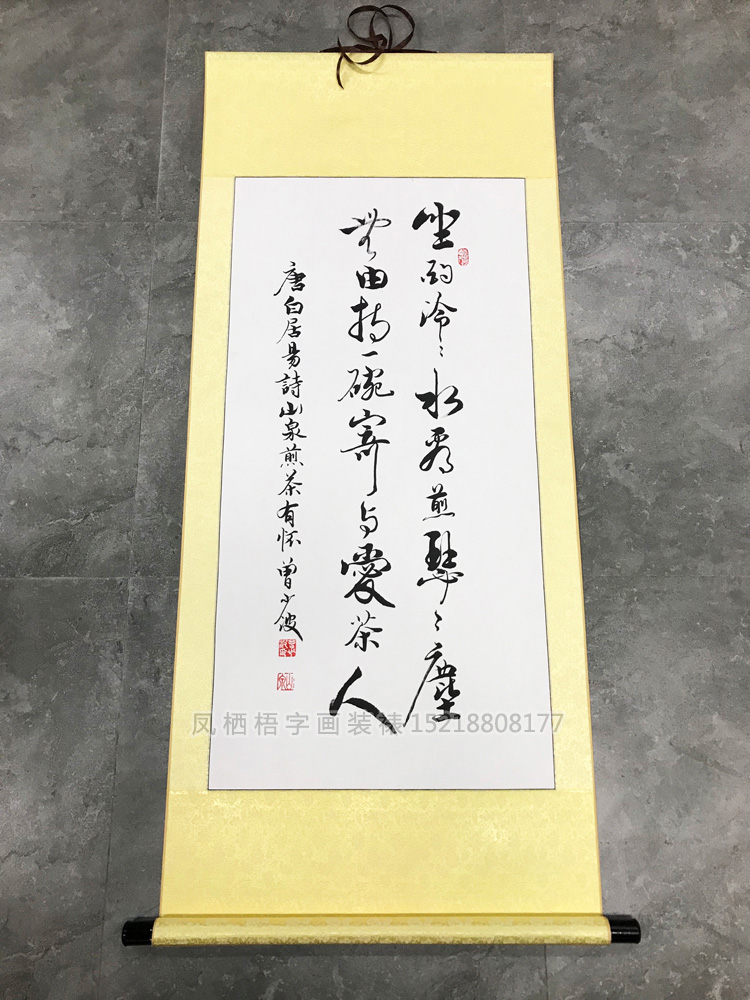 坐酌泠〻水看煎瑟〻塵
無由持一碗寄与愛茶人
唐白居易詩山泉煎茶有怀曾少俊
凤栖梧字画装裱15218808177